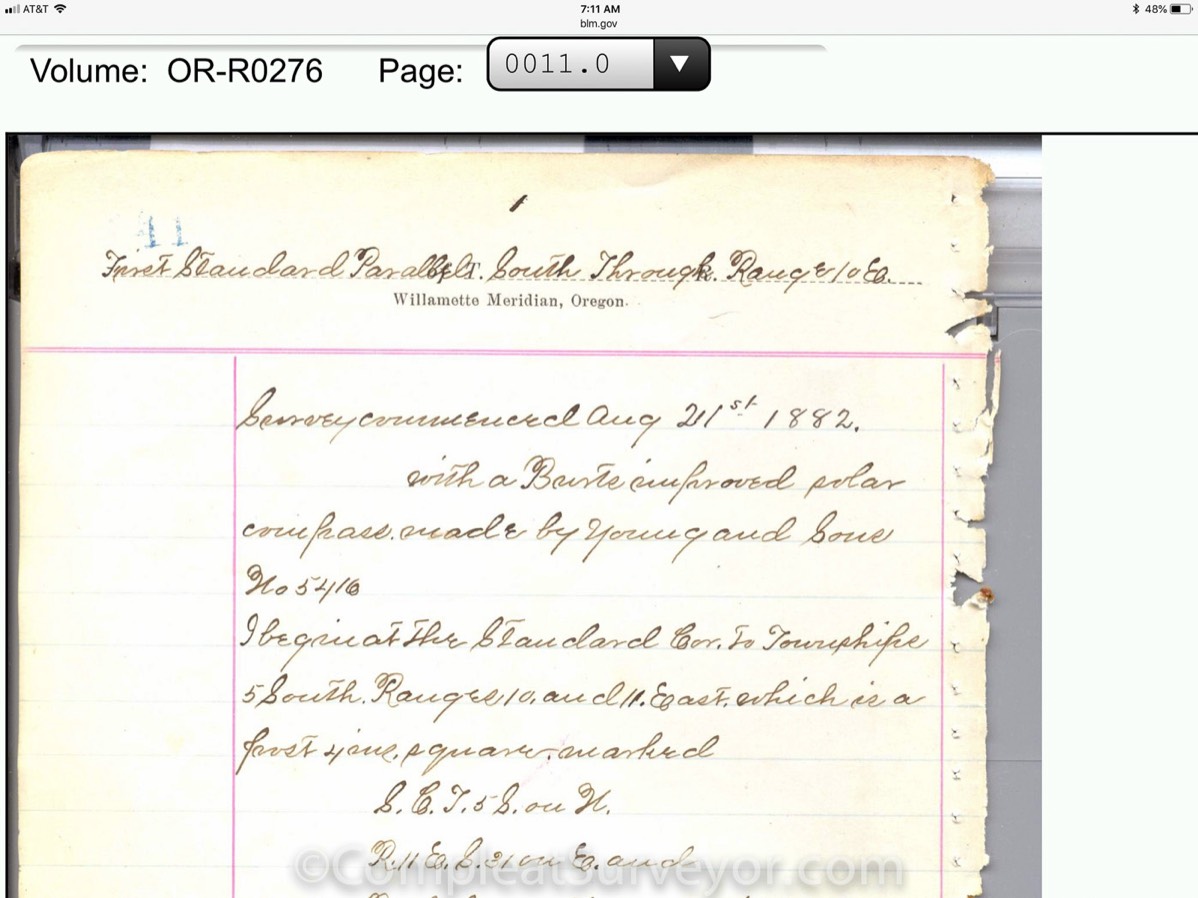 AT&T 7:11 AM 48%
blm.gov
Volume: OR-R0276 Page: 0011.0
1
11
First Standard Parallel South Through Range 10 E.
Willamette Meridian, Oregon.
Survey commenced Aug 21st 1882.
with a Burts improved solar
compass. made by Young and Sons
No 5416
I begin at the Standard Cor. to Townships
5 South. Ranges 10. and 11. East. which is a
post 4 ins. square. marked
S.C.T. 5 S. on N.
R. 11 E. S. 31 on E. and
©CompleatSurveyor.com